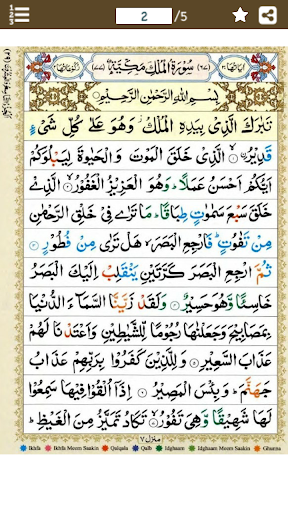 2 /5
اٰيَاتُهَا ٣٠ (٦٧) سُوْرَةُ الْمُلْكِ مَكِّيَّةٌ (٧٧) رُكُوْعَاتُهَا ٢
بِسْمِ اللّٰهِ الرَّحْمٰنِ الرَّحِيْمِ
تَبٰرَكَ الَّذِيْ بِيَدِهِ الْمُلْكُ ز وَهُوَ عَلٰى كُلِّ شَيْءٍ
قَدِيْرُ ۙ۝ الَّذِيْ خَلَقَ الْمَوْتَ وَالْحَيٰوةَ لِيَبْلُوَكُمْ
اَيُّكُمْ اَحْسَنُ عَمَلًا ؕ وَهُوَ الْعَزِيْزُ الْغَفُوْرُ ۙ۝ الَّذِيْ
خَلَقَ سَبْعَ سَمٰوٰتٍ طِبَاقًا ؕ مَا تَرٰى فِيْ خَلْقِ الرَّحْمٰنِ
مِنْ تَفٰوُتٍ ؕ فَارْجِعِ الْبَصَرَ ۙ هَلْ تَرٰى مِنْ فُطُوْرٍ ۝
ثُمَّ ارْجِعِ الْبَصَرَ كَرَّتَيْنِ يَنْقَلِبْ اِلَيْكَ الْبَصَرُ
خَاسِئًا وَّهُوَ حَسِيْرٌ ۝ وَلَقَدْ زَيَّنَّا السَّمَآءَ الدُّنْيَا
بِمَصَابِيْحَ وَجَعَلْنٰهَا رُجُوْمًا لِّلشَّيٰطِيْنِ وَاَعْتَدْنَا لَهُمْ
عَذَابَ السَّعِيْرِ ۝ وَلِلَّذِيْنَ كَفَرُوْا بِرَبِّهِمْ عَذَابُ
جَهَنَّمَ ؕ وَبِئْسَ الْمَصِيْرُ ۝ اِذَآ اُلْقُوْا فِيْهَا سَمِعُوْا
لَهَا شَهِيْقًا وَّهِيَ تَفُوْرُ ۙ۝ تَكَادُ تَمَيَّزُ مِنَ الْغَيْظِ ؕ
منزل ٧
Ikhfa Ikhfa Meem Saakin Qalqala Qalb Idghaam Idghaam Meem Saakin Ghunna